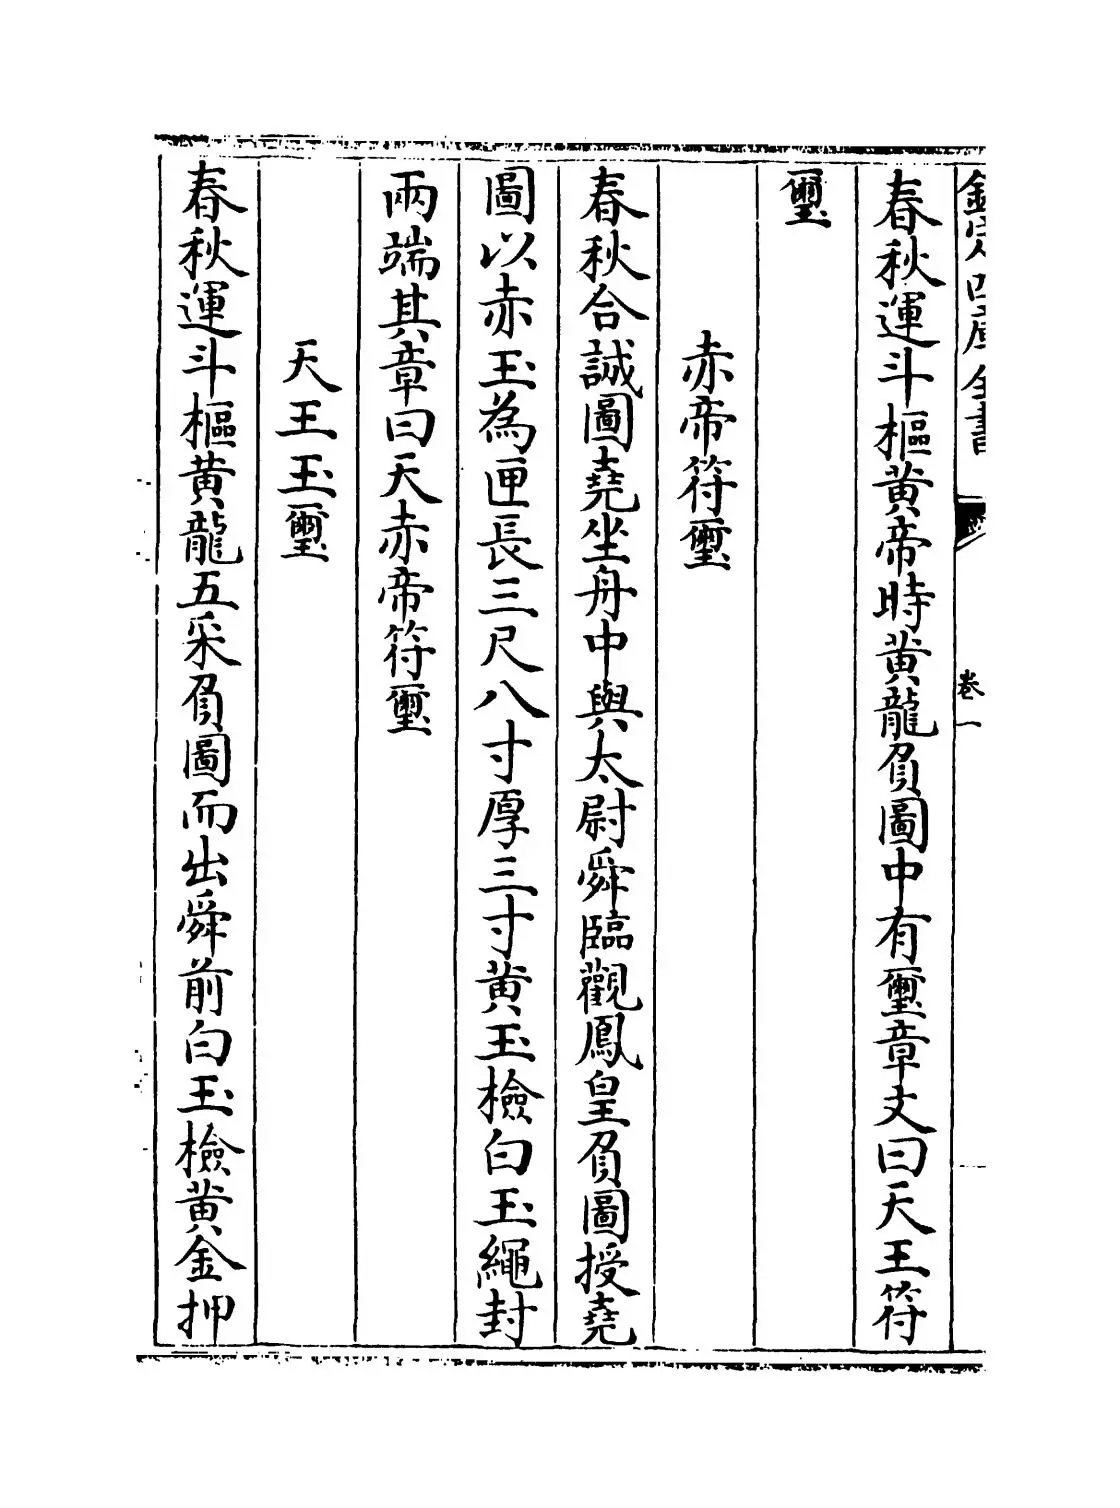 欽定四庫全書
卷一
春秋運斗樞黄帝時黄龍負圖中有璽章文曰天王符
璽
赤帝符璽
春秋合誠圖堯坐舟中與太尉舜臨觀鳳皇負圖授堯
圖以赤玉為匣長三尺八寸厚三寸黄玉檢白玉繩封
兩端其章曰天赤帝符璽
天王玉璽
春秋運斗樞黄龍五采負圖而出舜前白玉檢黄金押